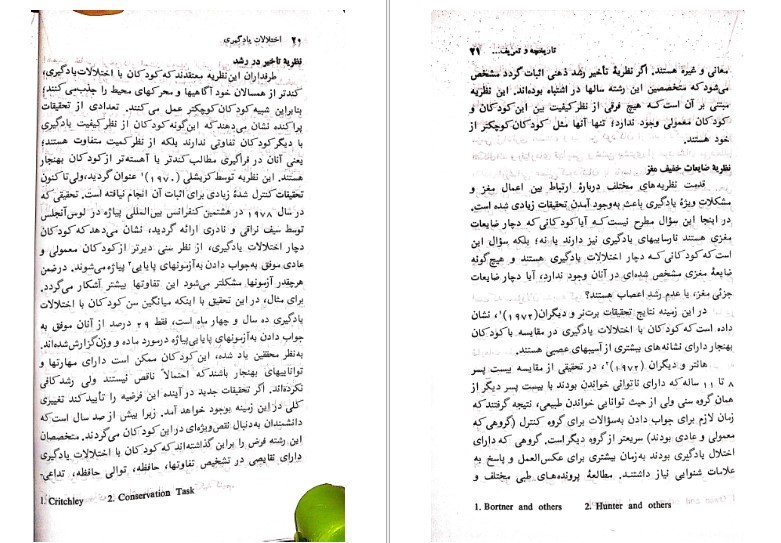 ۲۰ اختلالات یادگیری
نظریهٔ تأخیر در رشد
طرفداران این نظریه معتقدند که کودکان با اختلالات یادگیری،
کندتر از همسالان خود آگاهیها و محرکهای محیط را جذب می‌کنند؛
بنابراین شبیه کودکان کوچکتر عمل می‌کنند. تعدادی از تحقیقات
پراکنده نشان می‌دهند که این‌گونه کودکان از نظر کیفیت یادگیری
با دیگر کودکان تفاوتی ندارند بلکه از نظر کمیت متفاوت هستند؛
یعنی آنان در فراگیری مطالب کندتر یا آهسته‌تر از کودکان بهنجار
هستند. این نظریه توسط کریشلی (۱۹۷۰)۱ عنوان گردید، ولی تا کنون
تحقیقات کنترل شدهٔ زیادی برای اثبات آن انجام نیافته است. تحقیقی که
در سال ۱۹۷۸ در هشتمین کنفرانس بین‌المللی پیاژه در لوس‌آنجلس
توسط سیف نراقی و نادری ارائه گردید، نشان می‌دهد که کودکان
دچار اختلالات یادگیری، از نظر سنی دیرتر از کودکان معمولی و
عادی موفق به جواب دادن به آزمونهای پایایی۲ پیاژه می‌شوند. در ضمن
هرچقدر آزمونها مشکلتر می‌شود این تفاوتها بیشتر آشکار می‌گردد.
برای مثال، در این تحقیق با اینکه میانگین سن کودکان با اختلالات
یادگیری ده سال و چهار ماه است، فقط ۲۹ درصد از آنان موفق به
جواب دادن به آزمونهای پایایی پیاژه در مورد ماده و وزن گزارش شده‌اند.
به نظر محققین یاد شده، این کودکان ممکن است دارای مهارتها و
تواناییهای بهنجار باشند که احتمالاً ناقص نیستند ولی رشد کافی
نکرده‌اند. اگر تحقیقات جدید در آینده این فرضیه را تأیید کند تغییری
کلی در این زمینه بوجود خواهد آمد. زیرا بیش از صد سال است که
دانشمندان به دنبال نقص ویژه‌ای در این کودکان می‌گردند. متخصصان
این رشته فرض را بر این گذاشته‌اند که کودکان با اختلالات یادگیری
دارای نقایصی در تشخیص تفاوتها، حافظه، توالی حافظه، تداعی-
1. Critchley 2. Conservation Task
تاریخچه و تعریف... ۲۱
معانی و غیره هستند. اگر نظریهٔ تأخیر رشد ذهنی اثبات گردد مشخص
می‌شود که متخصصین این رشته سالها در اشتباه بوده‌اند. این نظریه
مبتنی بر آن است که هیچ فرقی از نظر کیفیت بین این کودکان و
کودکان معمولی وجود ندارد؛ تنها آنها مثل کودکان کوچکتر از
خود هستند.
نظریهٔ ضایعات خفیف مغز
قدمت نظریه‌های مختلف دربارهٔ ارتباط بین اعمال مغز و
مشکلات ویژهٔ یادگیری باعث به‌وجود آمدن تحقیقات زیادی شده است.
در اینجا این سؤال مطرح نیست که آیا کودکانی که دچار ضایعات
مغزی هستند نارساییهای یادگیری نیز دارند یا نه؛ بلکه سؤال این
است که کودکانی که دچار اختلالات یادگیری هستند و هیچ‌گونه
ضایعهٔ مغزی مشخص شده‌ای در آنان وجود ندارد، آیا دچار ضایعات
جزئی مغز، یا عدم رشد اعصاب هستند؟
در این زمینه نتایج تحقیقات برت‌نر و دیگران (۱۹۷۲)۱، نشان
داده است که کودکان با اختلالات یادگیری در مقایسه با کودکان
بهنجار دارای نشانه‌های بیشتری از آسیبهای عصبی هستند.
هانتر و دیگران (۱۹۷۲)۲، در تحقیقی از مقایسه بیست پسر
۸ تا ۱۱ ساله که دارای ناتوانی خواندن بودند با بیست پسر دیگر از
همان گروه سنی ولی از حیث توانایی خواندن طبیعی، نتیجه گرفتند که
زمان لازم برای جواب دادن به سؤالات برای گروه کنترل (گروهی که
معمولی و عادی بودند) سریعتر از گروه دیگر است. گروهی که دارای
اختلال یادگیری بودند به زمان بیشتری برای عکس‌العمل و پاسخ به
علامات شنوایی نیاز داشتند. مطالعهٔ پرونده‌های طبی مختلف و
1. Bortner and others 2. Hunter and others